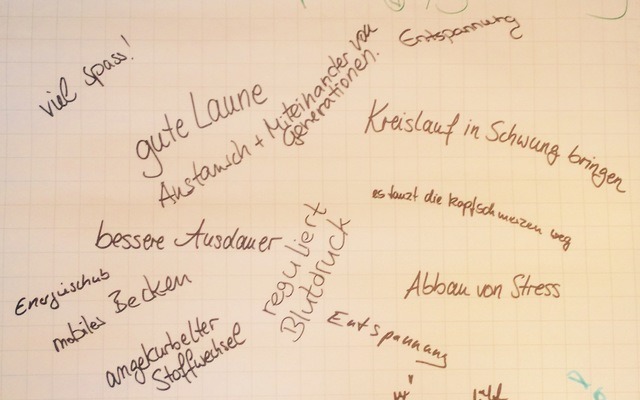 viel Spass!
Entspannung
gute Laune
Austausch + Miteinander von
Generationen.
Kreislauf in Schwung bringen
es tanzt die Kopfschmerzen weg
bessere Ausdauer
reguliert
Blutdruck
Energieschub
mobiles Becken
Abbau von Stress
angekurbelter
Stoffwechsel
Entspannung